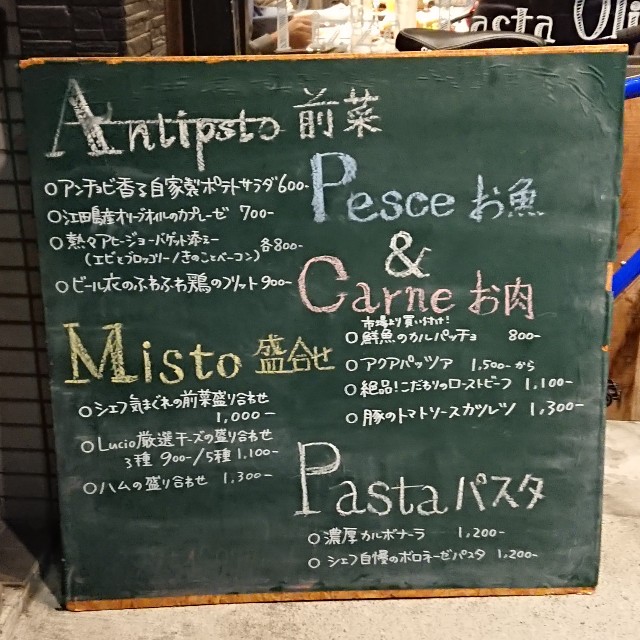 asta Oli
Antipsto 前菜
○アンチョビ香る自家製ポテトサラダ600-
○江田島産オリーブオイルのカプレーゼ 700-
○熱々アヒージョーバゲット添えー
(エビとブロッコリー/きのことベーコン) 各800-
○ビール衣のふわふわ鶏のフリット900-
Misto 盛合せ
○シェフ気まぐれの前菜盛り合わせ
1,000-
○Lucio厳選チーズの盛り合わせ
3種 900-/5種 1,100-
○ハムの盛り合わせ 1,300-
Pesce お魚
&
Carne お肉
市場より買い付け!
○鮮魚のカルパッチョ 800-
○アクアパッツァ 1,500-から
○絶品!こだわりのローストビーフ 1,100-
○豚のトマトソースカツレツ 1,300-
Pasta パスタ
○濃厚カルボナーラ 1,200-
○シェフ自慢のボロネーゼパスタ 1,200-